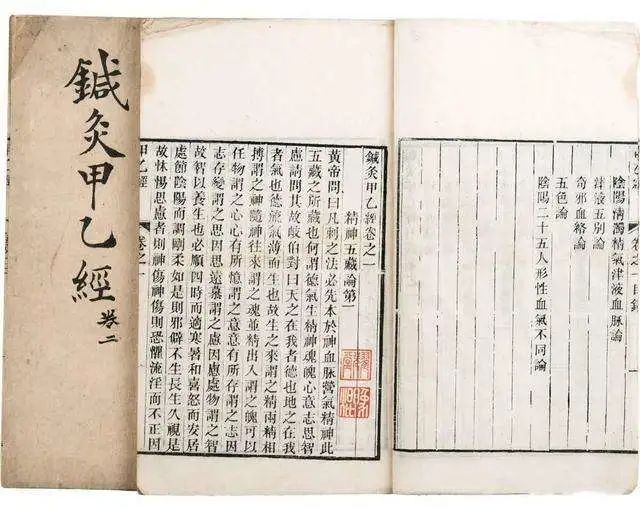 鍼灸甲乙經 卷二
卷之一目錄
陰陽清濁精氣津液血脉論
津液五别論
奇邪血絡論
五色論
陰陽二十五人形性血氣不同論
鍼灸甲乙經卷之一
精神五藏論第一
黃帝問曰凡刺之法必先本於神血脉營氣精神此
五藏之所藏也何謂德氣生精神魂魄心意志思智
慮請問其故岐伯對曰天之在我者德也地之在我
者氣也德流氣薄而生也故生之來謂之精兩精相
搏謂之神隨神往來謂之魂並精出入謂之魄可以
任物謂之心心有所憶謂之意意有所存謂之志因
志存變謂之思因思遠慕謂之慮因慮處物謂之智
故智以養生也必順四時而適寒暑和喜怒而安居
處節陰陽而調剛柔如是則邪僻不生長生久視是
故怵惕思慮者則神傷神傷則恐懼流淫而不正因
甲乙經 卷之一